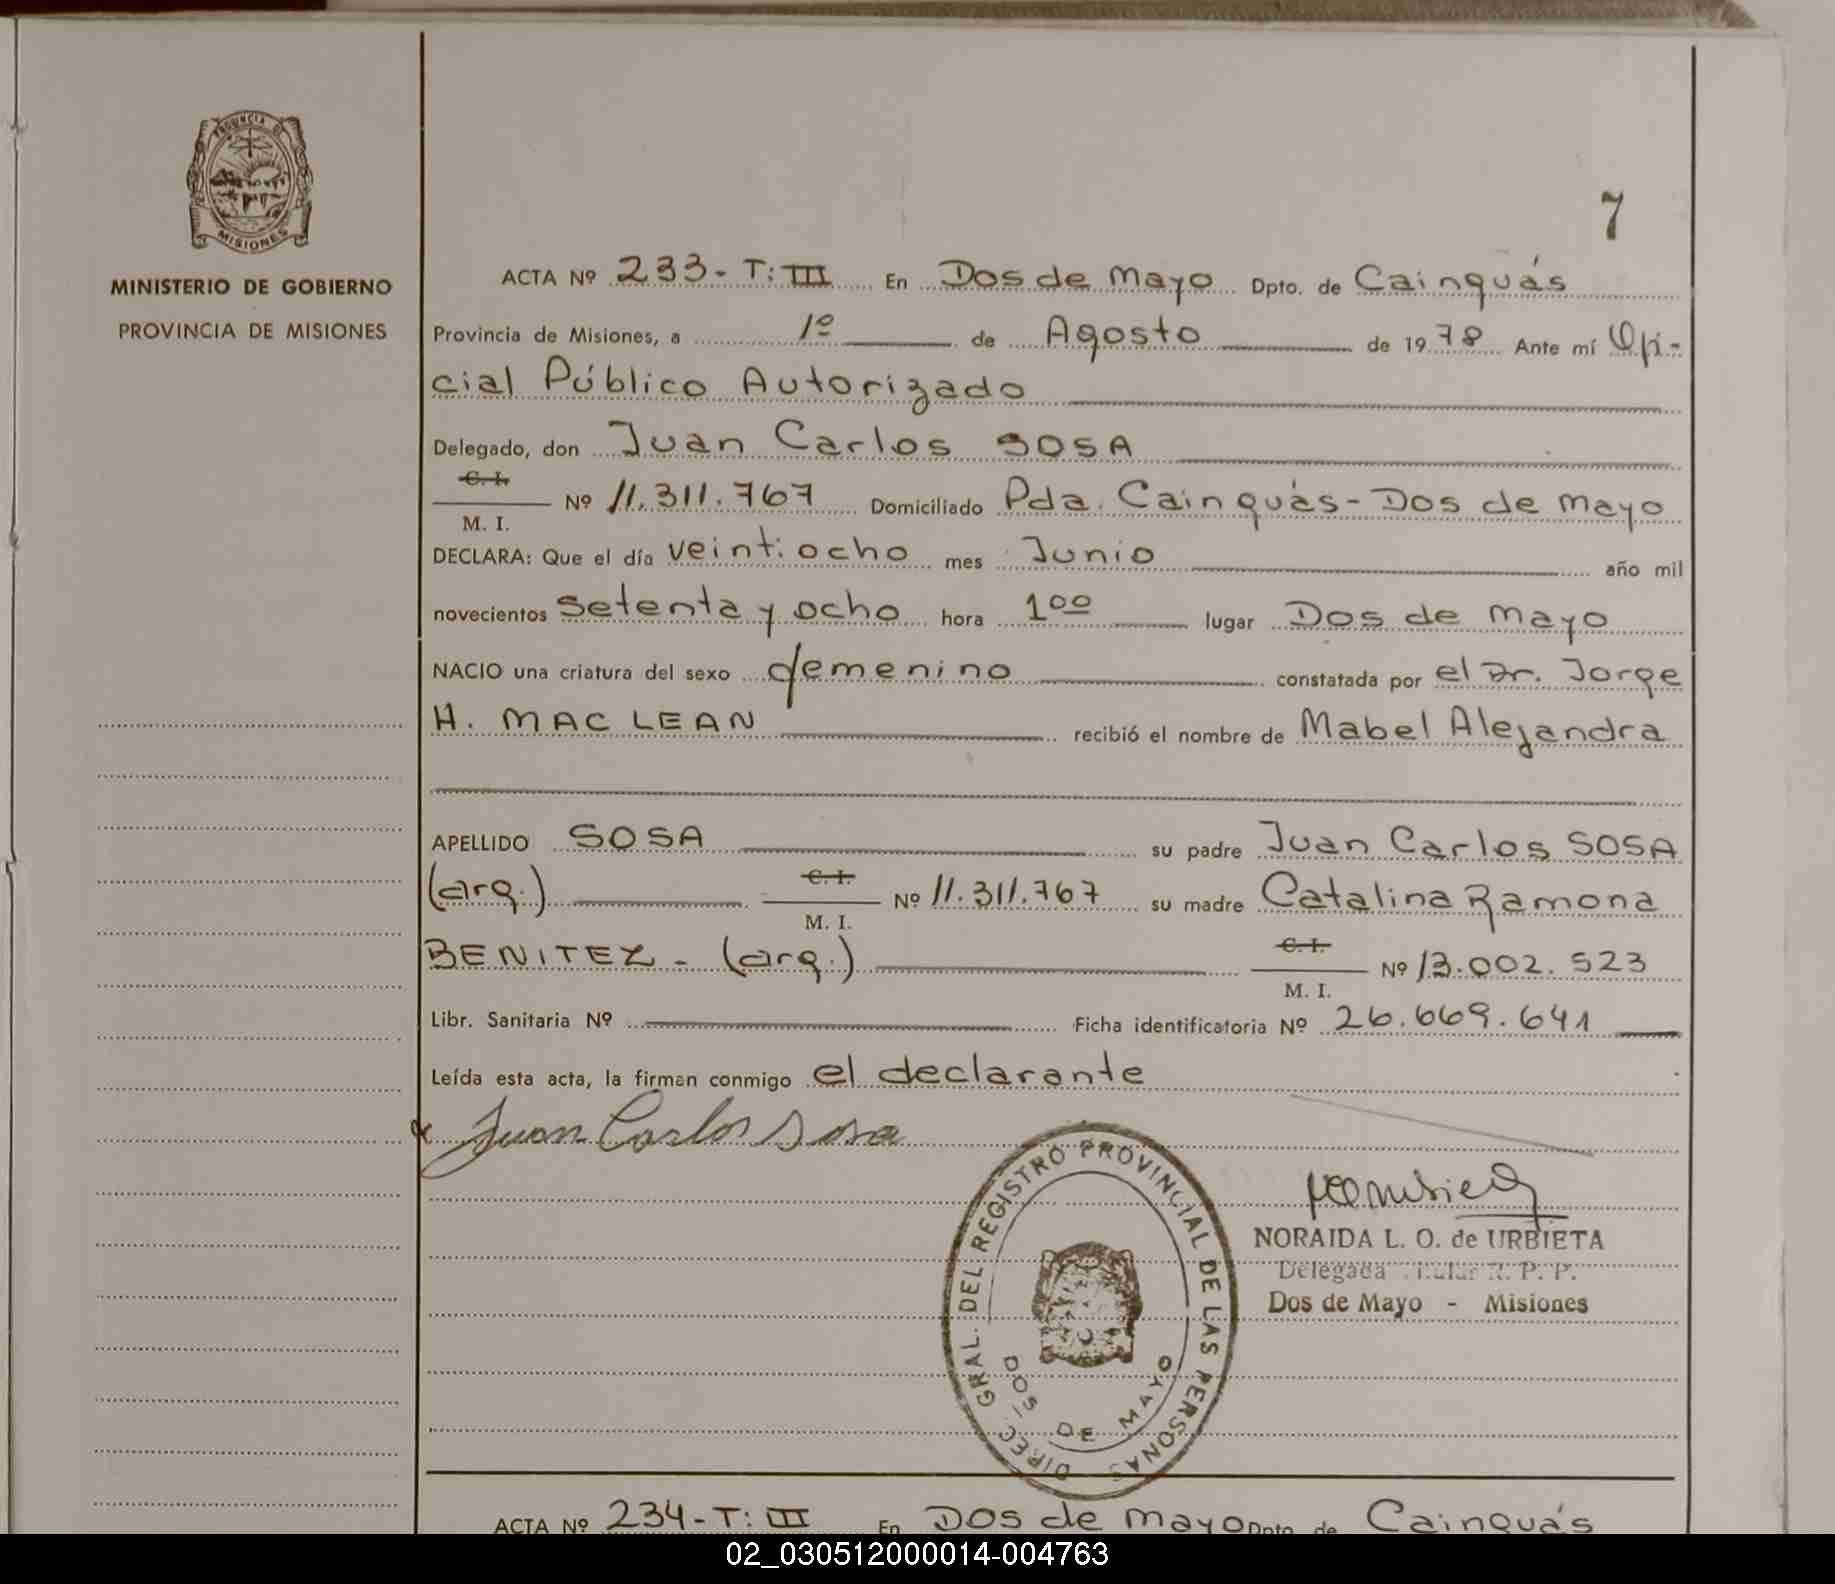 PROVINCIA DE
MISIONES
MINISTERIO DE GOBIERNO
PROVINCIA DE MISIONES
7
ACTA Nº 233- T: III En Dos de Mayo Dpto. de Cainguás
Provincia de Misiones, a 1º de Agosto de 1978 Ante mí Ofi-
cial Público Autorizado
Delegado, don Juan Carlos SOSA
C. I.
M. I. Nº 11.311.767 Domiciliado Pda. Cainguás - Dos de Mayo
DECLARA: Que el día veintiocho mes Junio año mil
novecientos setenta y ocho hora 1 00 lugar Dos de Mayo
NACIO una criatura del sexo femenino constatada por el Dr. Jorge
H. MAC LEAN recibió el nombre de Mabel Alejandra
APELLIDO SOSA su padre Juan Carlos SOSA
(arg.) C. I. M. I. Nº 11.311.767 su madre Catalina Ramona
BENITEZ - (arg.) C. I. M. I. Nº 13.002.523
Libr. Sanitaria Nº Ficha identificatoria Nº 26.669.641
Leída esta acta, la firman conmigo el declarante
Juan Carlos Sosa
DIREC. GRAL. DEL REGISTRO PROVINCIAL DE LAS PERSONAS
DOS DE MAYO
NORAIDA L. O. de URBIETA
Delegada Titular R. P. P.
Dos de Mayo - Misiones
ACTA Nº 234 - T: III En Dos de Mayo Dpto. de Cainguás
02_030512000014-004763